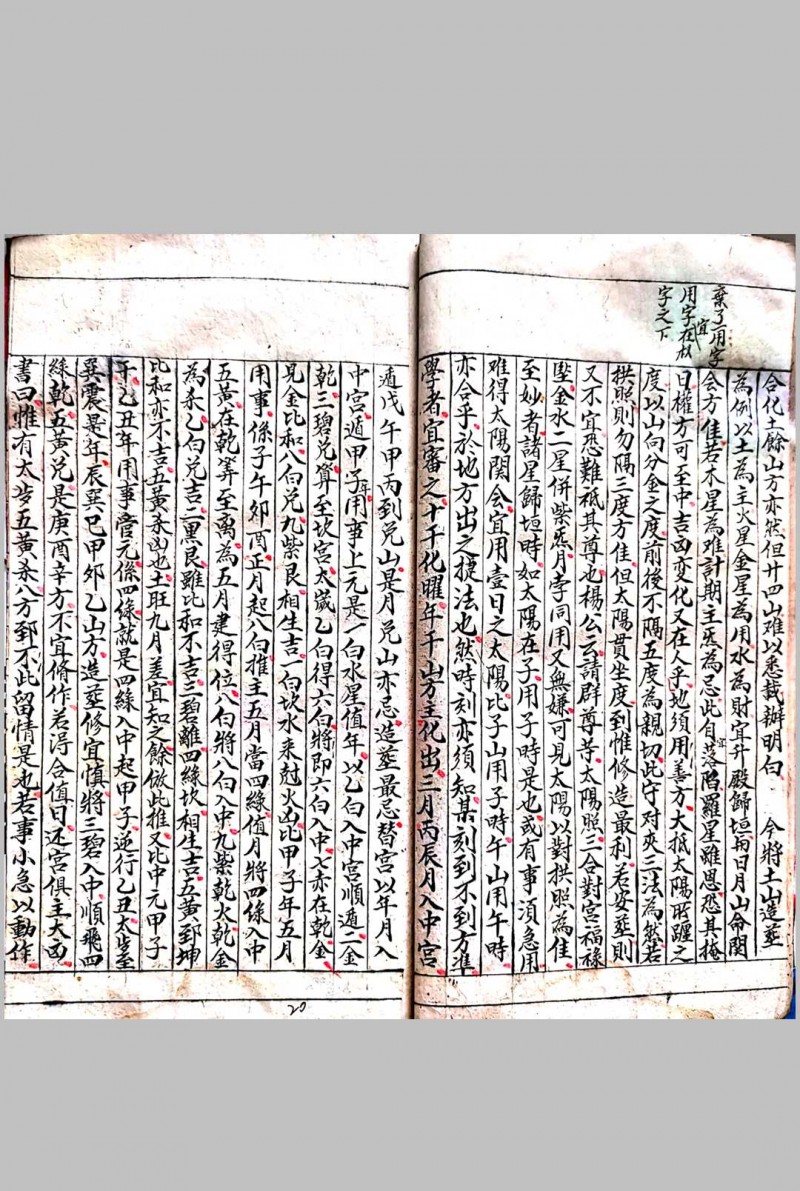 棄了一用字
用字在叔
宜
字之下
合化土餘山方亦然但廿四山难以悉載辦明白 今將土山造葬
為例以土為主火星金星為用水為財宜升殿歸垣兩日月山命関
会方佳若木星為难計期主炁為忌此自落陷羅星雖恩恐其掩
日權方可至中吉凶变化又在人乎地須用善方大抵太陽所躔之
度以山向分金之度前後不隔五度為親切此守对夾三法為然若
拱照則勿隔三度方佳但太陽贯坐度到惟修造最利若安葬則
又不宜恐難祗其尊也楊公云請群尊芳太陽照三合對宮福祿
坠金水二星併紫炁月孛同用又無嫌可見太陽以對拱照為佳
至妙者諸星歸垣時如太陽在子用子時是也或有事湏急用
难得太陽関会宜用壹日之太陽比子山用子時午山用午時
亦合乎於地方出之捷法也然時刻亦須知某刻到不到方準
學者宜審之十干化曜年干山方主化出三月丙辰月入中宮
遁戊午甲丙到兑山是月兑山亦忌造葬最忌替宮以年月入
中宮遁甲子年用事上元是一白水星值年以乙白入中宮順遁二金
乾三碧兑算至坎宮太歲乙白得六白將即六白入中七赤在乾金
見金比和八白兑九紫艮相生吉一白坎水来尅火凶比甲子年五月
用事係子午卯酉正月起八白推主五月當四綠值月將四綠入中
五黃在乾筭至离為五月建得位八白將八白入中九紫乾火乾金
為杀乙白兑吉二黑艮雖比和不吉三碧離四綠坎相生吉五黃到坤
比和亦不吉五黃杀凶也土旺九月差宜知之餘倣此推又比中元甲子
年乙丑年用事管元係四綠就是四綠入中起甲子逆行乙丑太歩至
巽震是年辰巽巳甲卯乙山方造葬修宜慎將三碧入中順飛四
綠乾五黃兑是庚酉辛方不宜脩作若浔合值日还宮俱主大凶
書曰惟有太歩五黃杀八方到不此留情是也若事小急以動作
20